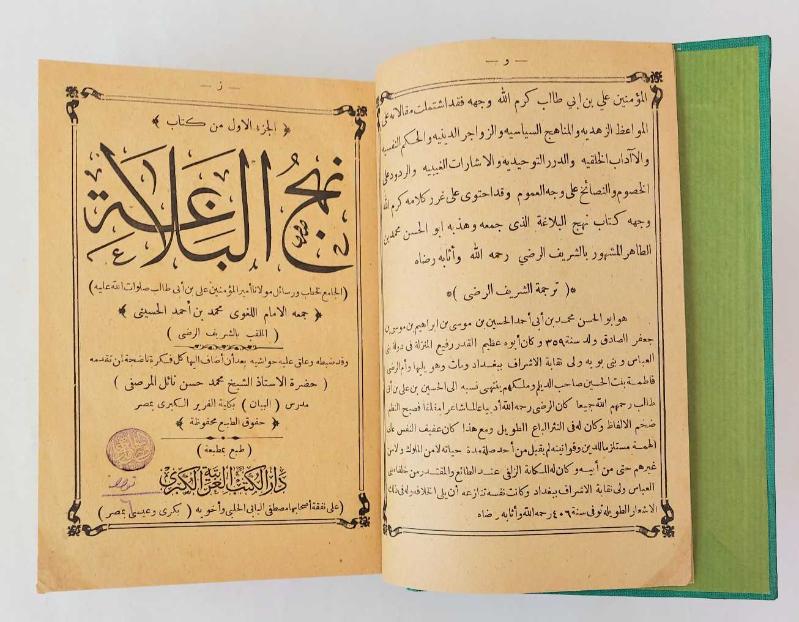 — و —
المؤمنين علي بن ابي طالب كرم الله وجهه فقد اشتملت مقالاته على
المواعظ الزهديه والمناهج السياسيه والزواجر الدينيه والحكم النفسيه
والاآداب الخلقيه والدرر التوحيديه والاشارات الغيبيه والردود على
الخصوم والنصائح على وجه العموم وقد احتوى على غرر كلامه كرم الله
وجهه كتاب نهج البلاغة الذى جمعه وهذبه ابو الحسن محمد بن
الطاهر المشهور بالشريف الرضي رحمه الله وأثابه رضاه
*( ترجمة الشريف الرضى )*
هو ابو الحسن محمد بن أبي أحمد الحسين بن موسى بن ابراهيم بن موسى بن
جعفر الصادق ولد سنة ٣٥٩ وكان أبوه عظيم القدر رفيع المنزلة في دولة بني
العباس وبنى بويه ولى نقابة الاشراف ببغداد ومات وهو يليها وأم الرضى
فاطمة بنت الحسين صاحب الديلم وملكهم ينتهى نسبه الى الحسين بن على بن أبي
طالب رحمهم الله جميعا كان الرضى رحمه الله أديبا عالما شاعرا مفلقا فصيح النظم
ضخم الالفاظ وكان له في النثر الباع الطويل ومع هذا كان عفيف النفس على
الهمة مستلزما للدين وقوانينه لم يقبل من أحد صلة مدة حياته لا من الملوك ولا من
غيرهم حتى من أبيه وكان له المكانة الزلفى عند الطائع والمقتدر من خلفاء بني
العباس ولى نقابة الاشراف ببغداد وكانت نفسه تنازعه أن يلى الخلافه وله في ذلك
الاشعار الطويله توفى سنة ٤٠٦ رحمه الله وأثابه رضاه
— ز —
﴿ الجزء الاول من كتاب ﴾
نهج البلاغة
(الجامع لخطب ورسائل مولانا أمير المؤمنين على بن أبى طالب صلوات الله عليه)
﴿ جمعه الامام اللغوى محمد بن أحمد الحسينى ﴾
( الملقب بالشريف الرضى )
وقد ضبطه وعلق عليه حواشيه بعد أن أضاف اليها كل فكرة ناضجة لمن تقدمه
( حضرة الاستاذ الشيخ محمد حسن نائل المرصفى )
مدرس ( البيان ) بكلية الفرير الكبرى بمصر
﴿ حقوق الطبع محفوظة ﴾
( طبع بمطبعة )
دار الكتب العربية الكبرى
( على نفقة أصحابها مصطفى البابى الحلبى وأخويه ( بكرى وعيسى بمصر )